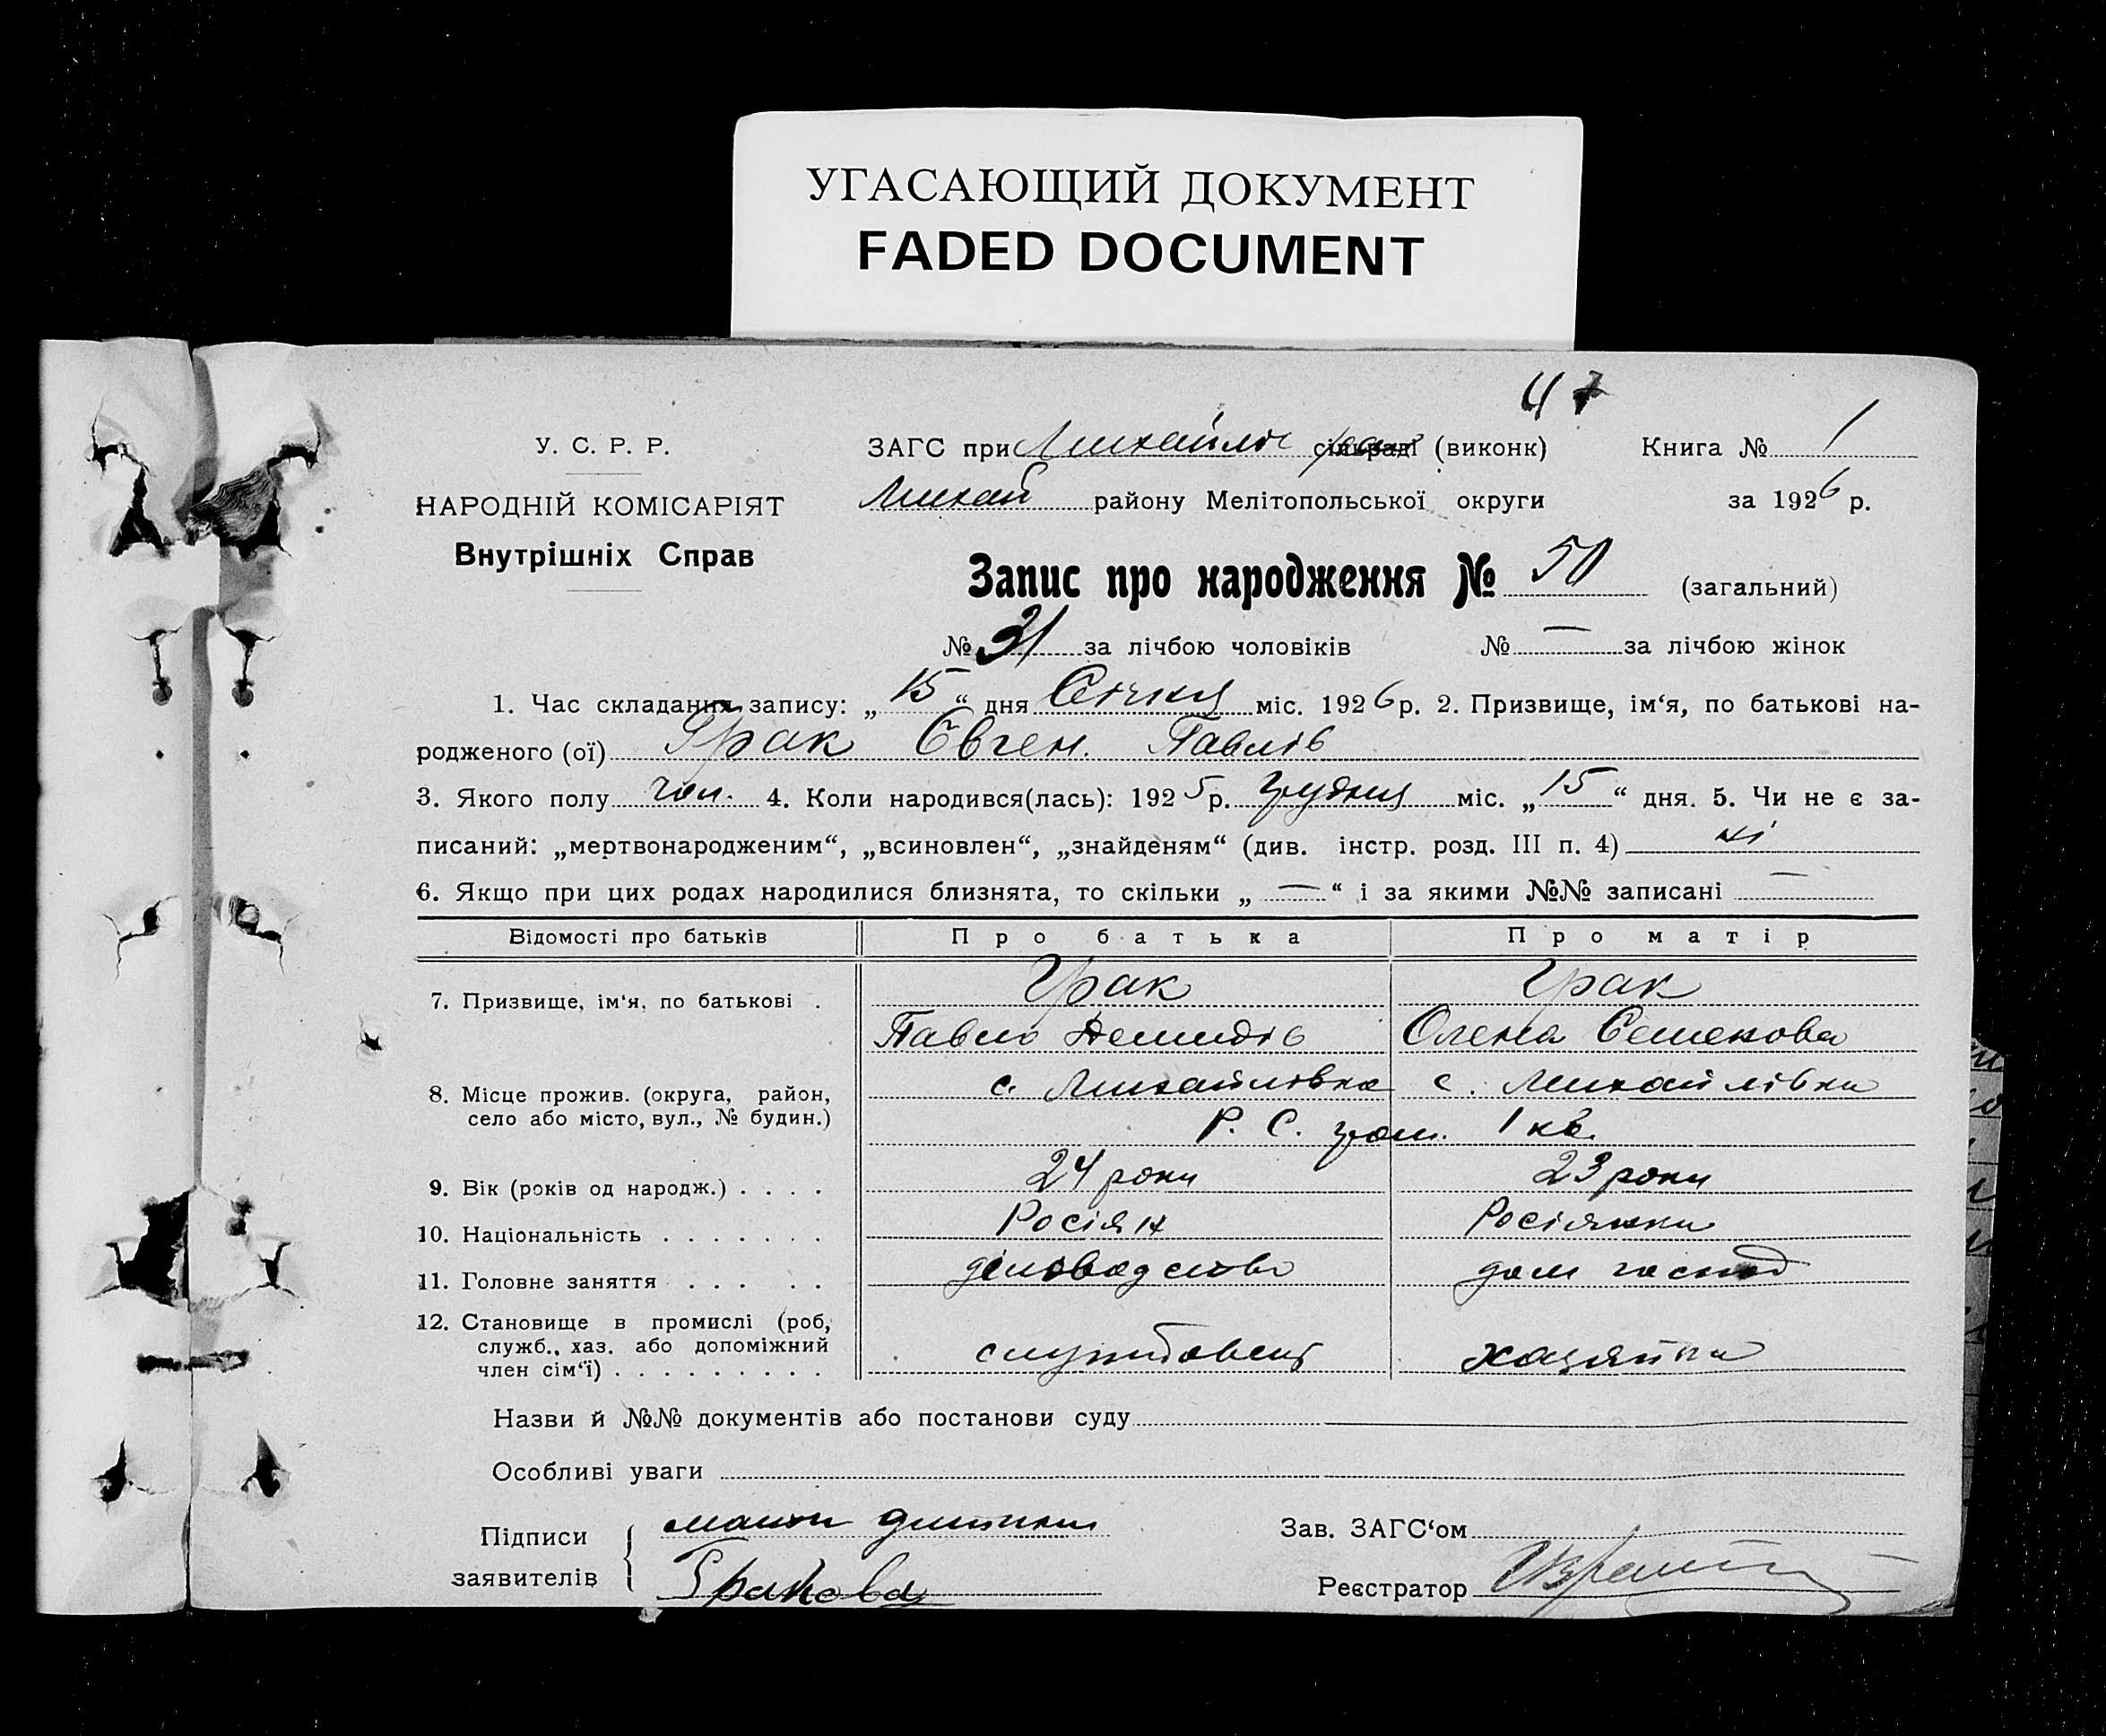 УГАСАЮЩИЙ ДОКУМЕНТ
FADED DOCUMENT
47
У. С. Р. Р.
ЗАГС при Михайлів сільраді (виконк) Книга № 1
НАРОДНІЙ КОМІСАРІЯТ
Михай району Мелітопольської округи за 1926 р.
Внутрішніх Справ
Запис про народження № 50 (загальний)
№ 31 за лічбою чоловіків № — за лічбою жінок
1. Час складання запису: „15“ дня Січня міс. 1926 р. 2. Призвище, ім‘я, по батькові на-
родженого (ої) Грак Євген. Павлів
3. Якого полу чол. 4. Коли народився(лась): 1925 р. грудня міс. „15“ дня. 5. Чи не є за-
писаний: „мертвонародженим“, „всиновлен“, „знайденям“ (див. інстр. розд. III п. 4) ні
6. Якщо при цих родах народилися близнята, то скільки „—“ і за якими №№ записані —
Відомості про батьків Про батька Про матір
7. Призвище, ім‘я, по батькові . Грак Грак
Павло Демидів Олена Семенова
8. Місце прожив. (округа, район, с. Михайлівка с. Михайлівка
село або місто, вул., № будин.) Р. С. гром. 1 кв.
9. Вік (років од народж.) . . . . 24 роки 23 роки
10. Національність . . . . . . . Росіян Росіянка
11. Головне заняття . . . . . діловодство дом господ
12. Становище в промислі (роб,
служб., хаз. або допоміжний
член сім‘ї) . . . . . . . . . службовець хазяйка
Назви й №№ документів або постанови суду
Особливі уваги
Підписи мати дитини Зав. ЗАГС‘ом
заявителів Гракова Реєстратор